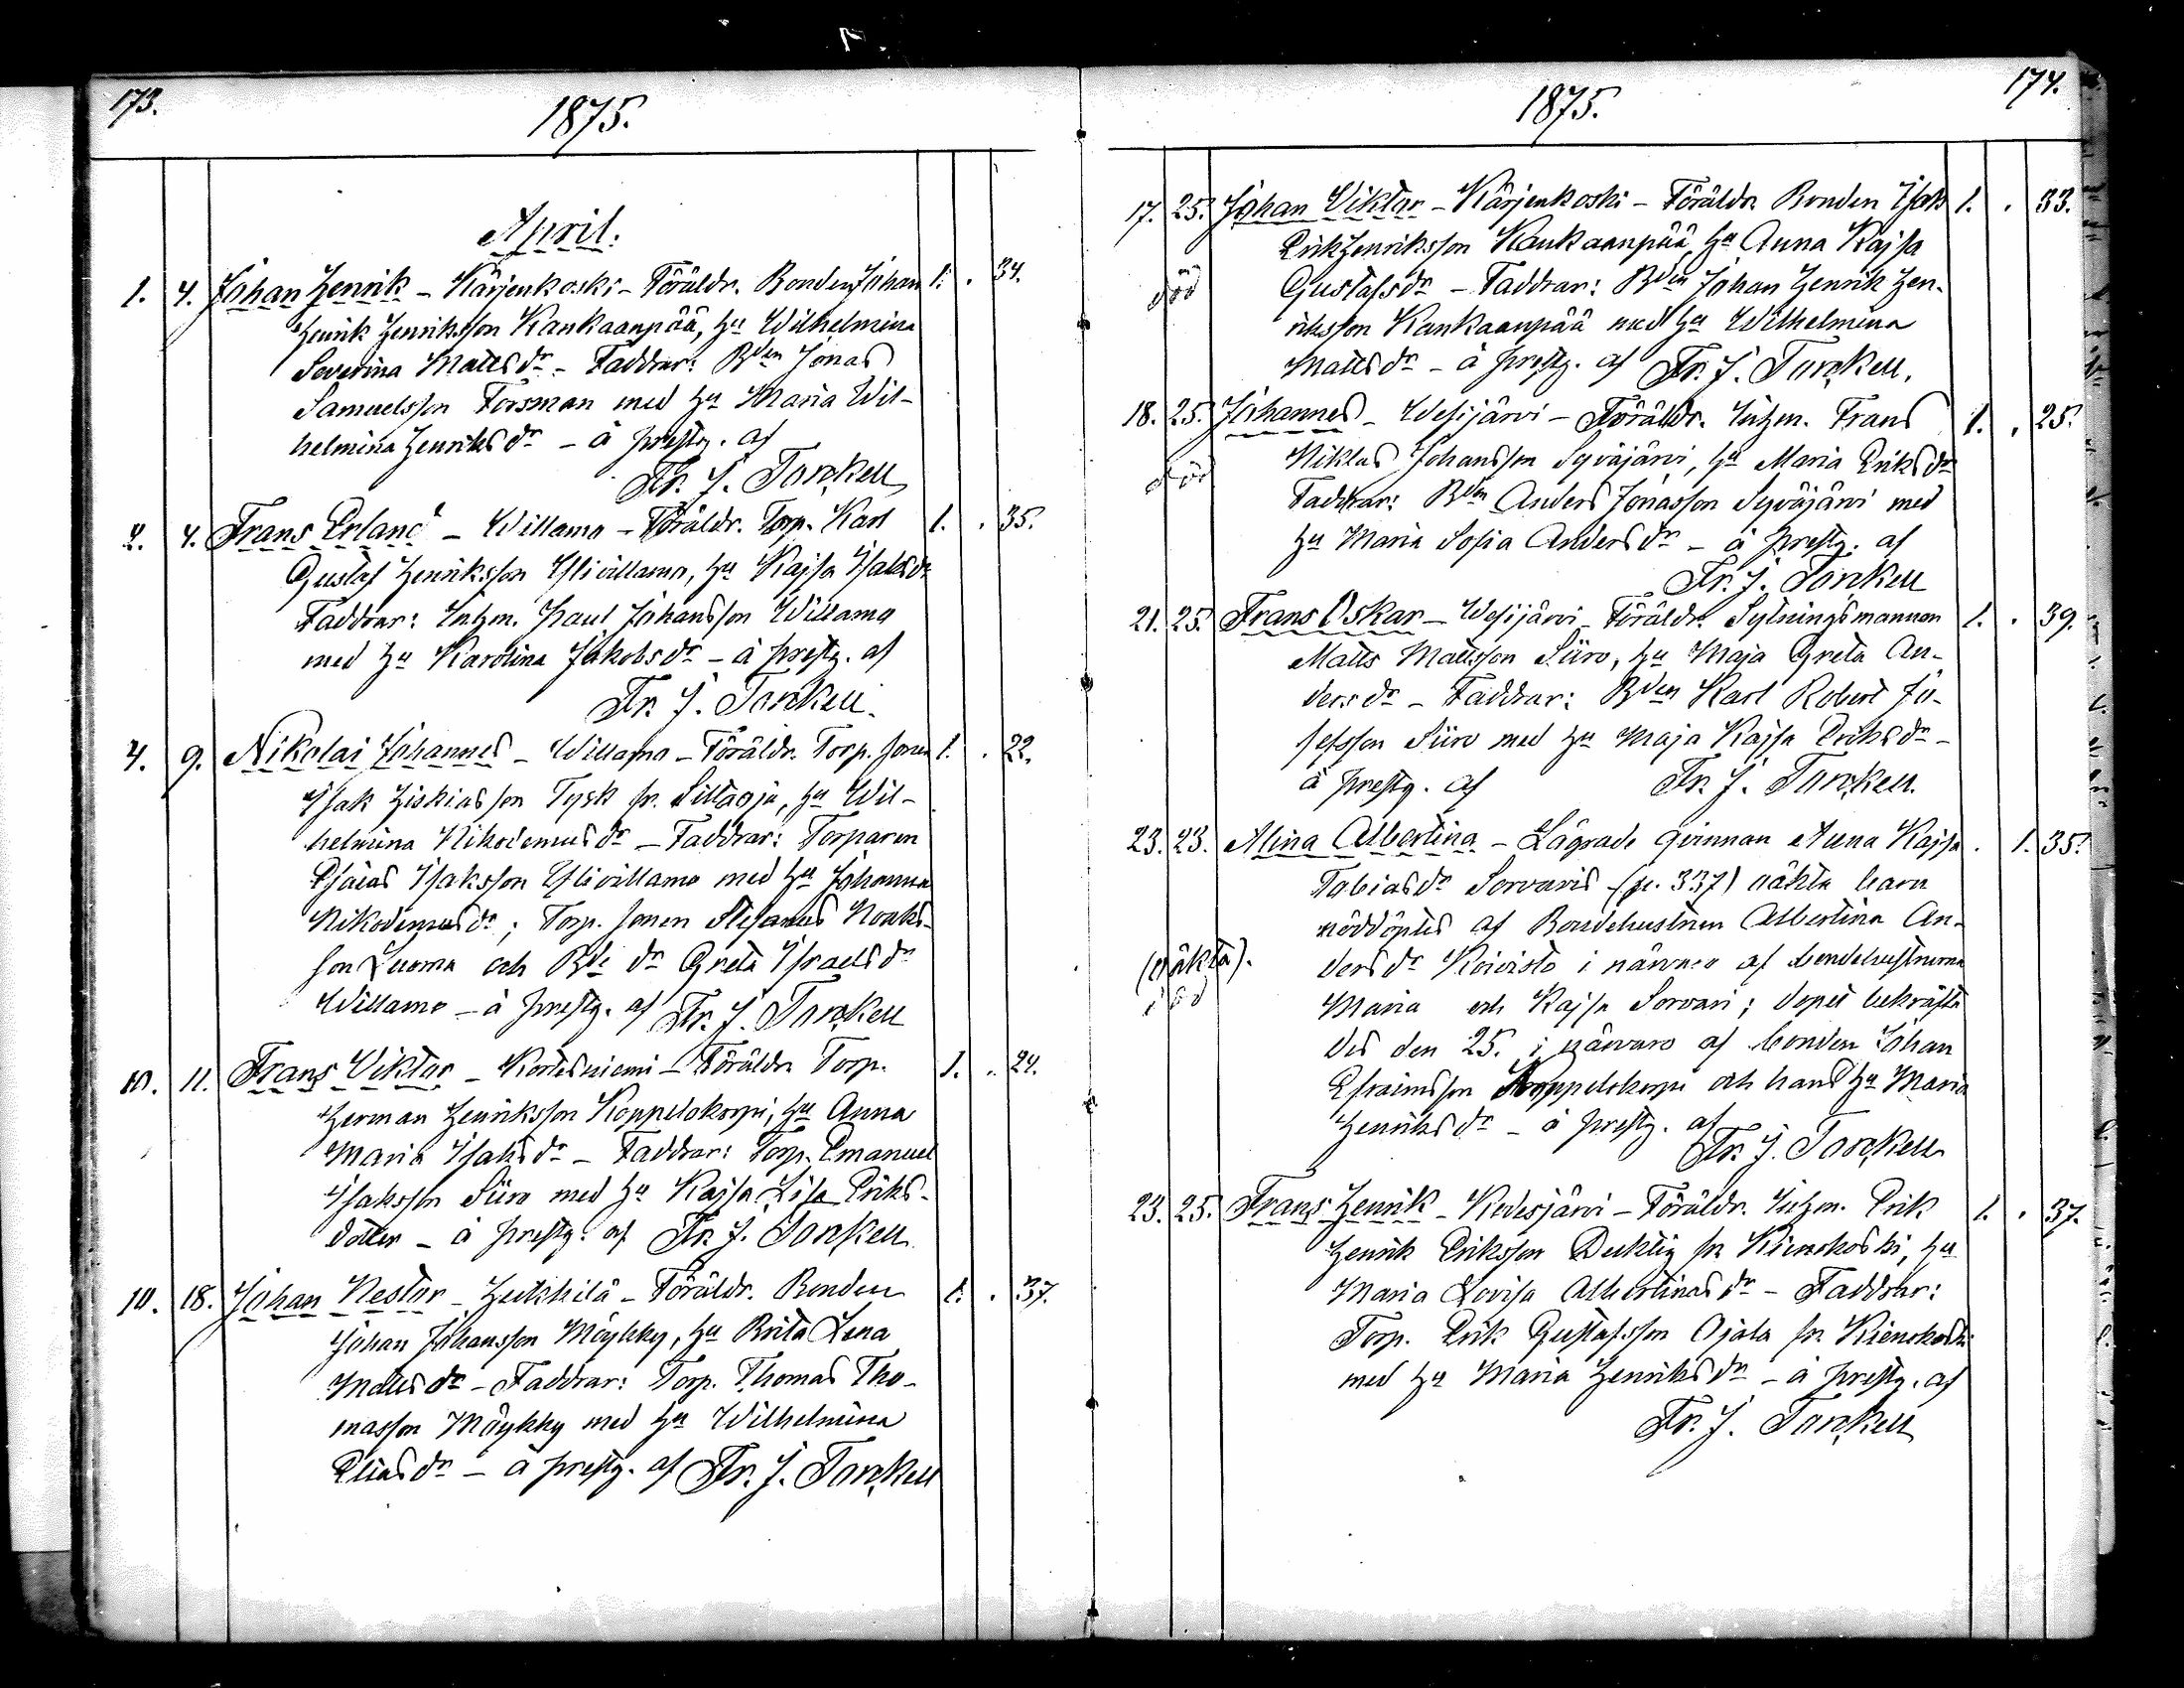 173.
1875.
April.
1. 4. Johan Henrik - Kärjenkoski - Föräldr. Bonden Johan 1. . 34.
Henrik Henriksson Kankaanpää, Hu Wilhelmina
Severina Matts dr - Faddrar: Bden Jonas
Samuelsson Forsman med Hu Maria Wil-
helmina Henriks dr - å prestg. af
Fr. J. Tanckell
2. 4. Frans Erland - Willamo - Föräldr. Torp. Karl 1. . 35.
Gustaf Henriksson Ylivillamo, Hu Kajsa Isaksdr
Faddrar: Inhm. Paul Johansson Willamo
med Hu Karolina Jakobs dr - å prestg. af
Fr. J. Tanckell
4. 9. Nikolai Johannes - Willamo - Föräldr. Torp. sonen 1. . 22.
Isak Hiskiasson Tysk fr. Sillaoja, Hu Wil-
helmina Nikodemus dr - Faddrar: Torparen
Esaias Isaksson Ylivillamo med Hu Johanna
Nikodemus dr; Torp. sonen Stefanus Noaks-
son Luoma och Bde dr Greta Israels dr
Willamo - å prestg. af Fr. J. Tanckell
10. 11. Frans Viktor - Kortesniemi - Föräldr Torp. 1. . 24.
Herman Henriksson Koppelokorpi, Hu Anna
Maria Isaks dr - Faddrar: Torp. Emanuel
Isaksson Siiro med Hu Kajsa Lisa Eriks-
dotter - å prestg. af Fr. J. Tanckell
10. 18. Johan Nestor - Heikkilä - Föräldr. Bonden 1. . 37.
Johan Johansson Möykky, Hu Brita Lena
Matts dr - Faddrar: Torp. Thomas Tho-
masson Möykky med Hu Wilhelmina
Elias dr - å prestg. af Fr. J. Tanckell
174.
1875.
17. 25. Johan Viktor - Kärjenkoski - Föräldr. Bonden Isak 1. . 33.
Erik Henriksson Kankaanpää, Hu Anna Kajsa
död Gustafs dr - Faddrar: Bden Johan Henrik Hen-
riksson Kankaanpää med Hu Wilhelmina
Matts dr - å prestg. af Fr. J. Tanckell.
18. 25. Johannes - Wesijärvi - Föräldr. Inhm. Frans 1. . 25.
Niklas Johansson Syväjärvi, Hu Maria Eriks dr
död Faddrar: Bden Anders Jonasson Syväjärvi med
Hu Maria Sofia Anders dr - å prestg. af
Fr. J. Tanckell
21. 25. Frans Oskar - Wesijärvi - Föräldr. Sytningsmannen 1. . 39.
Matts Mattsson Siiro, Hu Maja Greta An-
ders dr - Faddrar: Bden Karl Robert Jo-
sefsson Siiro med Hu Maja Kajsa Eriks dr -
å prestg. af Fr. J. Tanckell.
23. 23. Alina Albertina - Lägrade qvinnan Anna Kajsa . 1. 35.
Tobias dr Sorvaris (p. 337) oäkta barn
nöddöptes af Bondehustrun Albertina An-
(oäkta). ders dr Koivisto i närvaro af bondehustrurna
död Maria och Kajsa Sorvari; dopet bekräfta
des den 25. i närvaro af bonden Johan
Efraimsson Koppelokorpi och hans Hu Maria
Henriks dr - å prestg. af
Fr. J. Tanckell
23. 25. Frans Henrik - Kedesjärvi - Föräldr. Inhm. Erik 1. . 37.
Henrik Eriksson Ducktig fr. Kienokoski, Hu
Maria Lovisa Albertinas dr - Faddrar:
Torp. Erik Gustafsson Ojala fr. Kienokoski
med Hu Maria Henriks dr - å prestg. af
Fr. J. Tanckell